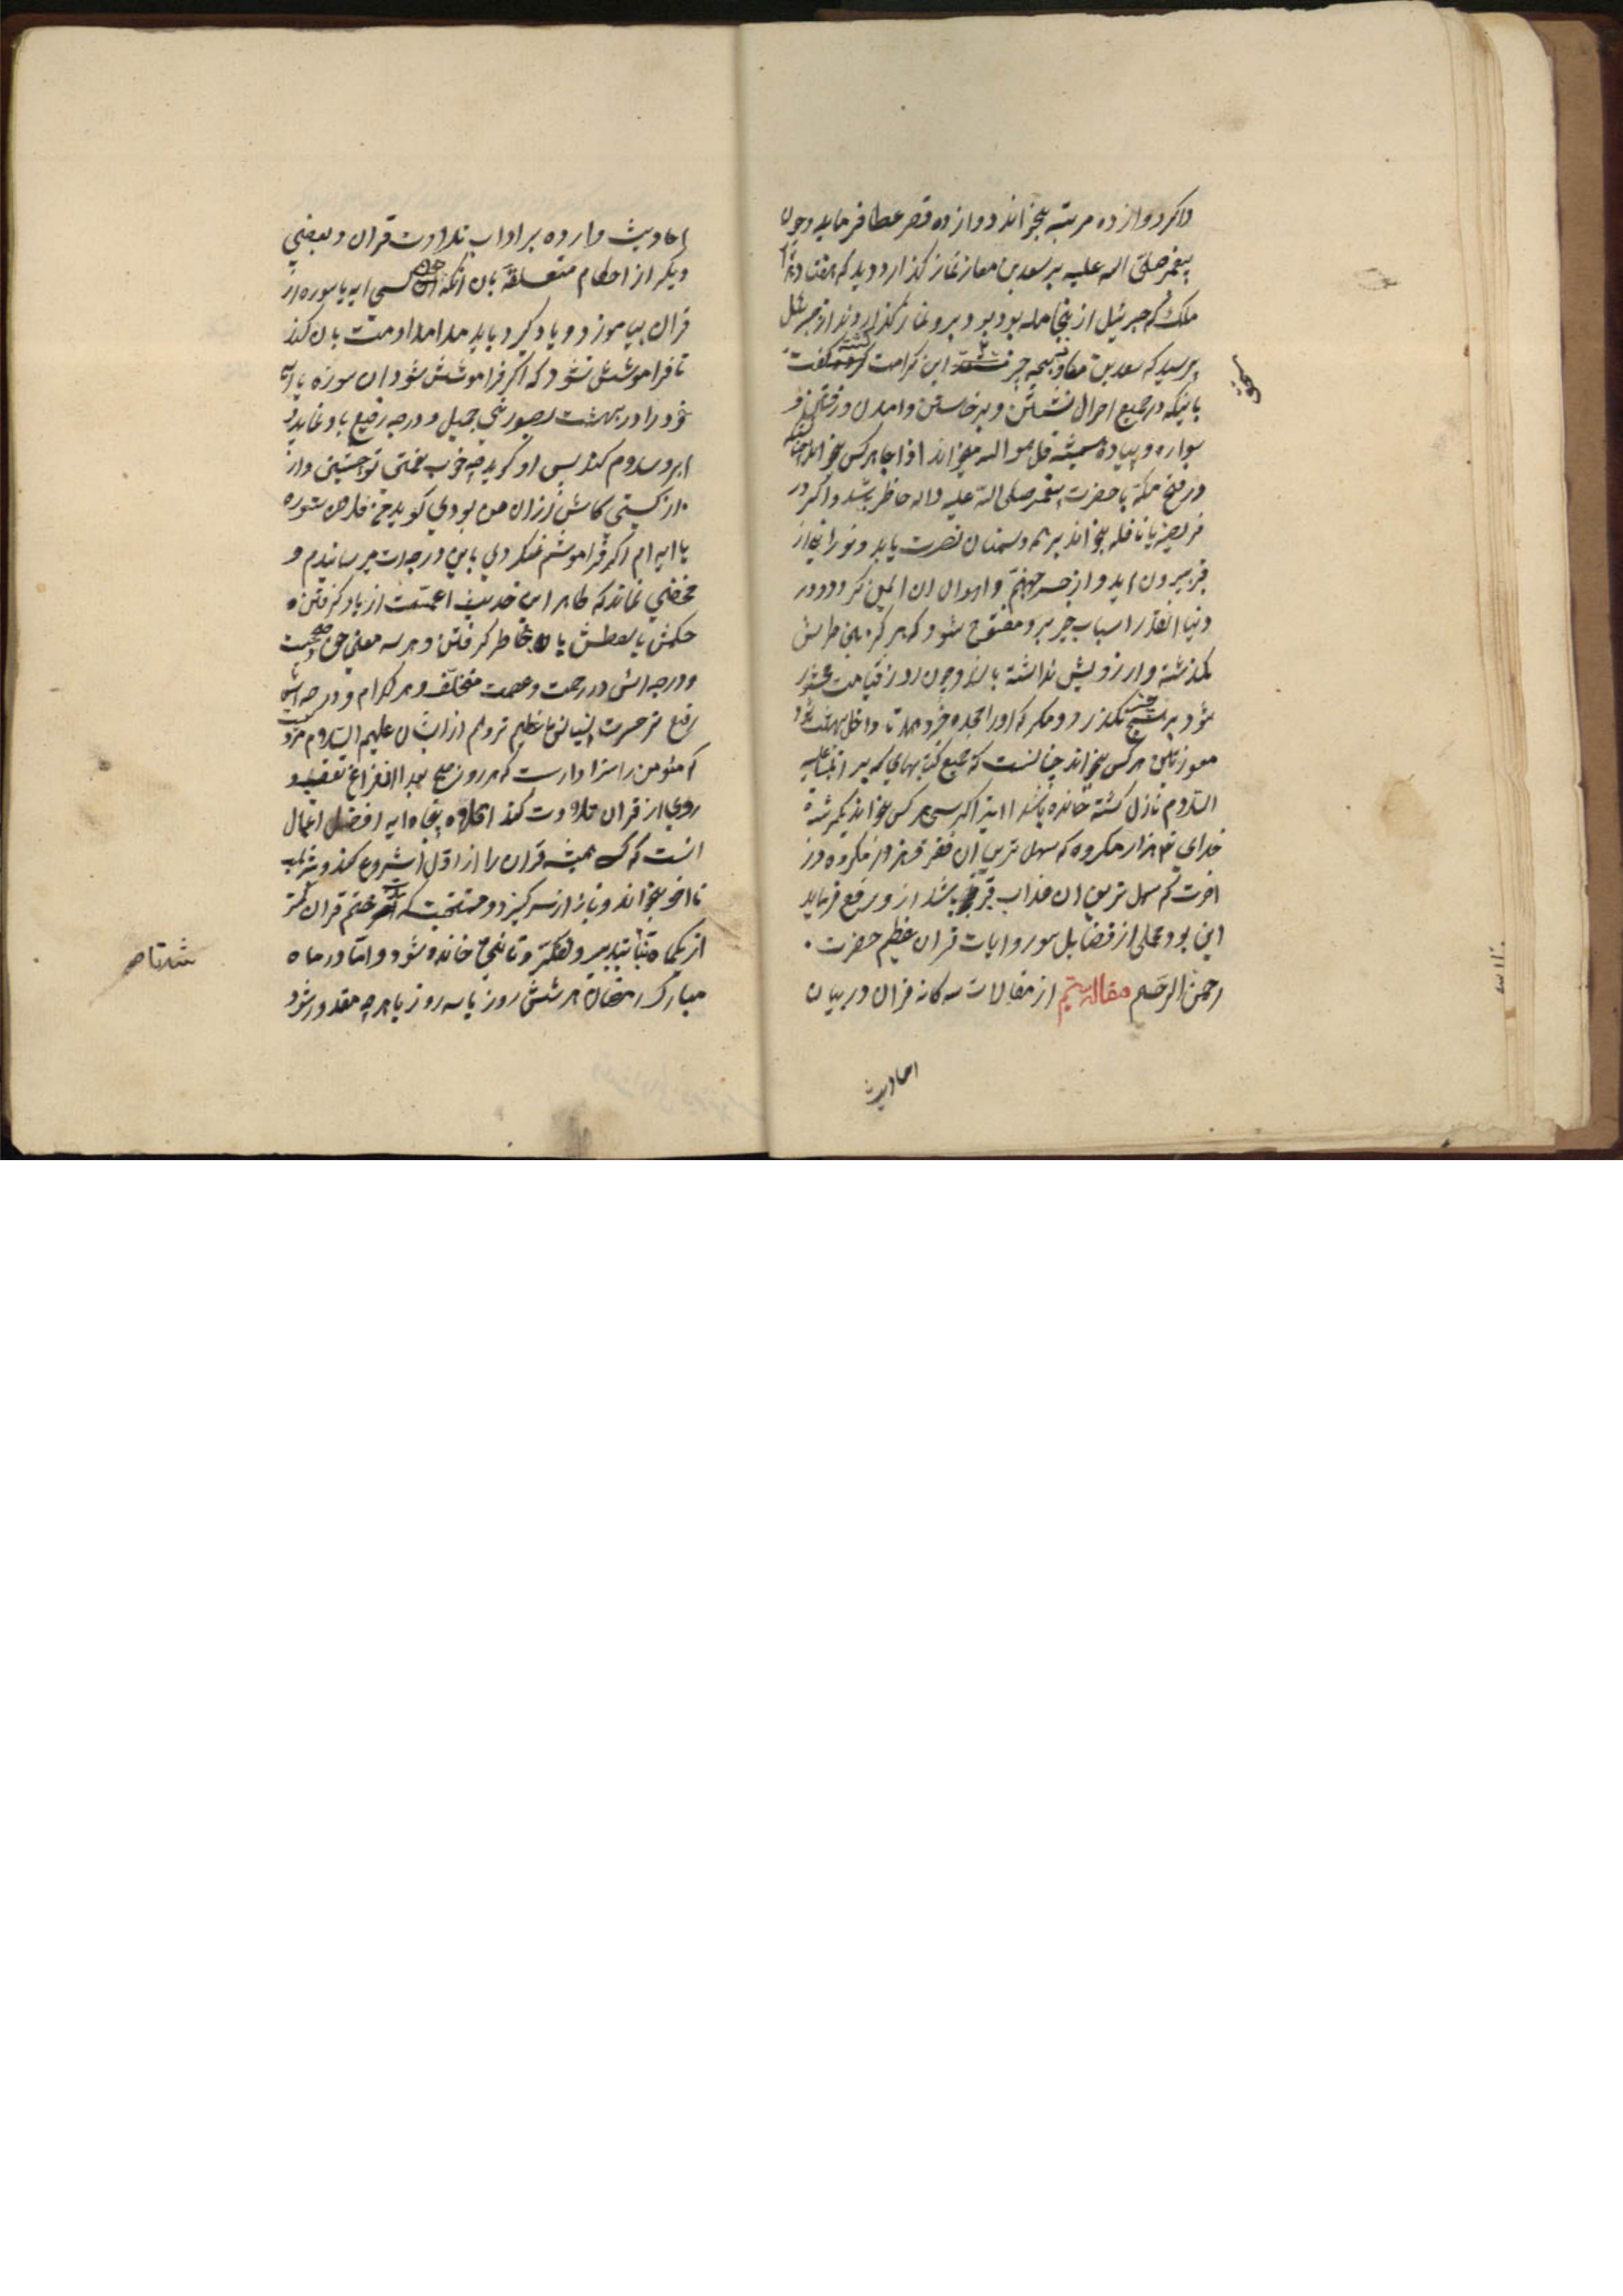 و اکر دوازده مرتبه بخواند دوازده قصر عطا فرماید و چون
پیغمبر صلی الله علیه بر سعد بن معاز نماز کذارد دید که هفتاد هزار
ملک که جبرئیل از انجمله بود بر و نماز کذاردند از جبرئیل
پرسید که سعد بن معاذ بچه چیز مستحق این کرامت کشته کفت
باینکه در جمیع احوال نشستن و برخاستن و امدن و رفتن
سواره و پیاده همیشه قل هو الله میخواند اذا جا هر کس بخواند
در فتح مکه با حضرت پیغمبر صلی الله علیه واله حاظر باشد و اکر در
فریضه یا نافله بخواند بر همه دشمنان نصرت یابد و نورانی از
قبر بیرون اید و از جسر جهنم و اهوال ان ایمن کردد و در
دنیا انقدر اسباب خیر برو مفتوح شود که هرکز بخاطرش
نکذشته و ارزویش نداشته باشد و چون روز قیامت محشور
شود بر هیچ چیز نکذرد مکر که او را مژده دهد تا داخل بهشت شود
معوذتین هر کس بخواند چنانست که جمیع کتابهای که بر انبیا علیه
السلام نازل کشته خوانده باشد ایة الکرسی هر کس بخواند یکمرتبه
خدای هزار مکروه که سهل ترین ان فقر و هزار مکروه در
اخرت که سهل ترین ان عذاب قبر باشد از و رفع فرماید
این بود مجملی از فضایل سور و ایات قران عظیم حضرت
رحمن الرحیم مقاله سیم از مقالات سه کانه قران در بیان
احادیث
احادیث وارده بر اداب تلاوت قران و بعضی
دیکر از احکام متعلقه بان انکه چون کسی ایه یا سوره از
قران بیاموزد و یاد کیرد باید مداومت بان کند
تا فراموشش نشود که اکر فراموشش شود ان سوره یا ایه
خود را در بهشت بصورتی جمیل و درجه رفیع باو نماید
ابرو سلام کند پس او کوید چه خوب نعمتی تو چیستی و از
از کیستی کاش از ان من بودی کوید من فلان سوره
یا ایه ام اکر فراموشم نمیکردی باین درجه ات میرسانیدم و
مخفی نماند که ظاهر این حدیث اعمست از یاد کرفتن
حکمش یا لفظش یا بخاطر کرفتن و هر سه معنی حق و صحیحست
و درجه اش در رحمت و عصمت مختلف و هر کدام و درجه اش
رفیع تر حسرت نسیانش عظیم تر و هم از ایشان علیهم السلام مرویست
که مؤمن را سزاوارست که هر روز صبح بعد از فراغ تعقیب
روی از قران تلاوت کند اقلاً پنجاه ایه افضل اعمال
انست که همیشه قران را از اول شروع کند و بترتیب
تا اخر بخواند و باز از سر کیرد و مستحبست که ختم قران کمتر
از یکماه نباشد بتدبیر و تفکر و تانی خوانده شود و اما در ماه
مبارک رمضان هر شش روز یا سه روز یا هر چه مقدور شود